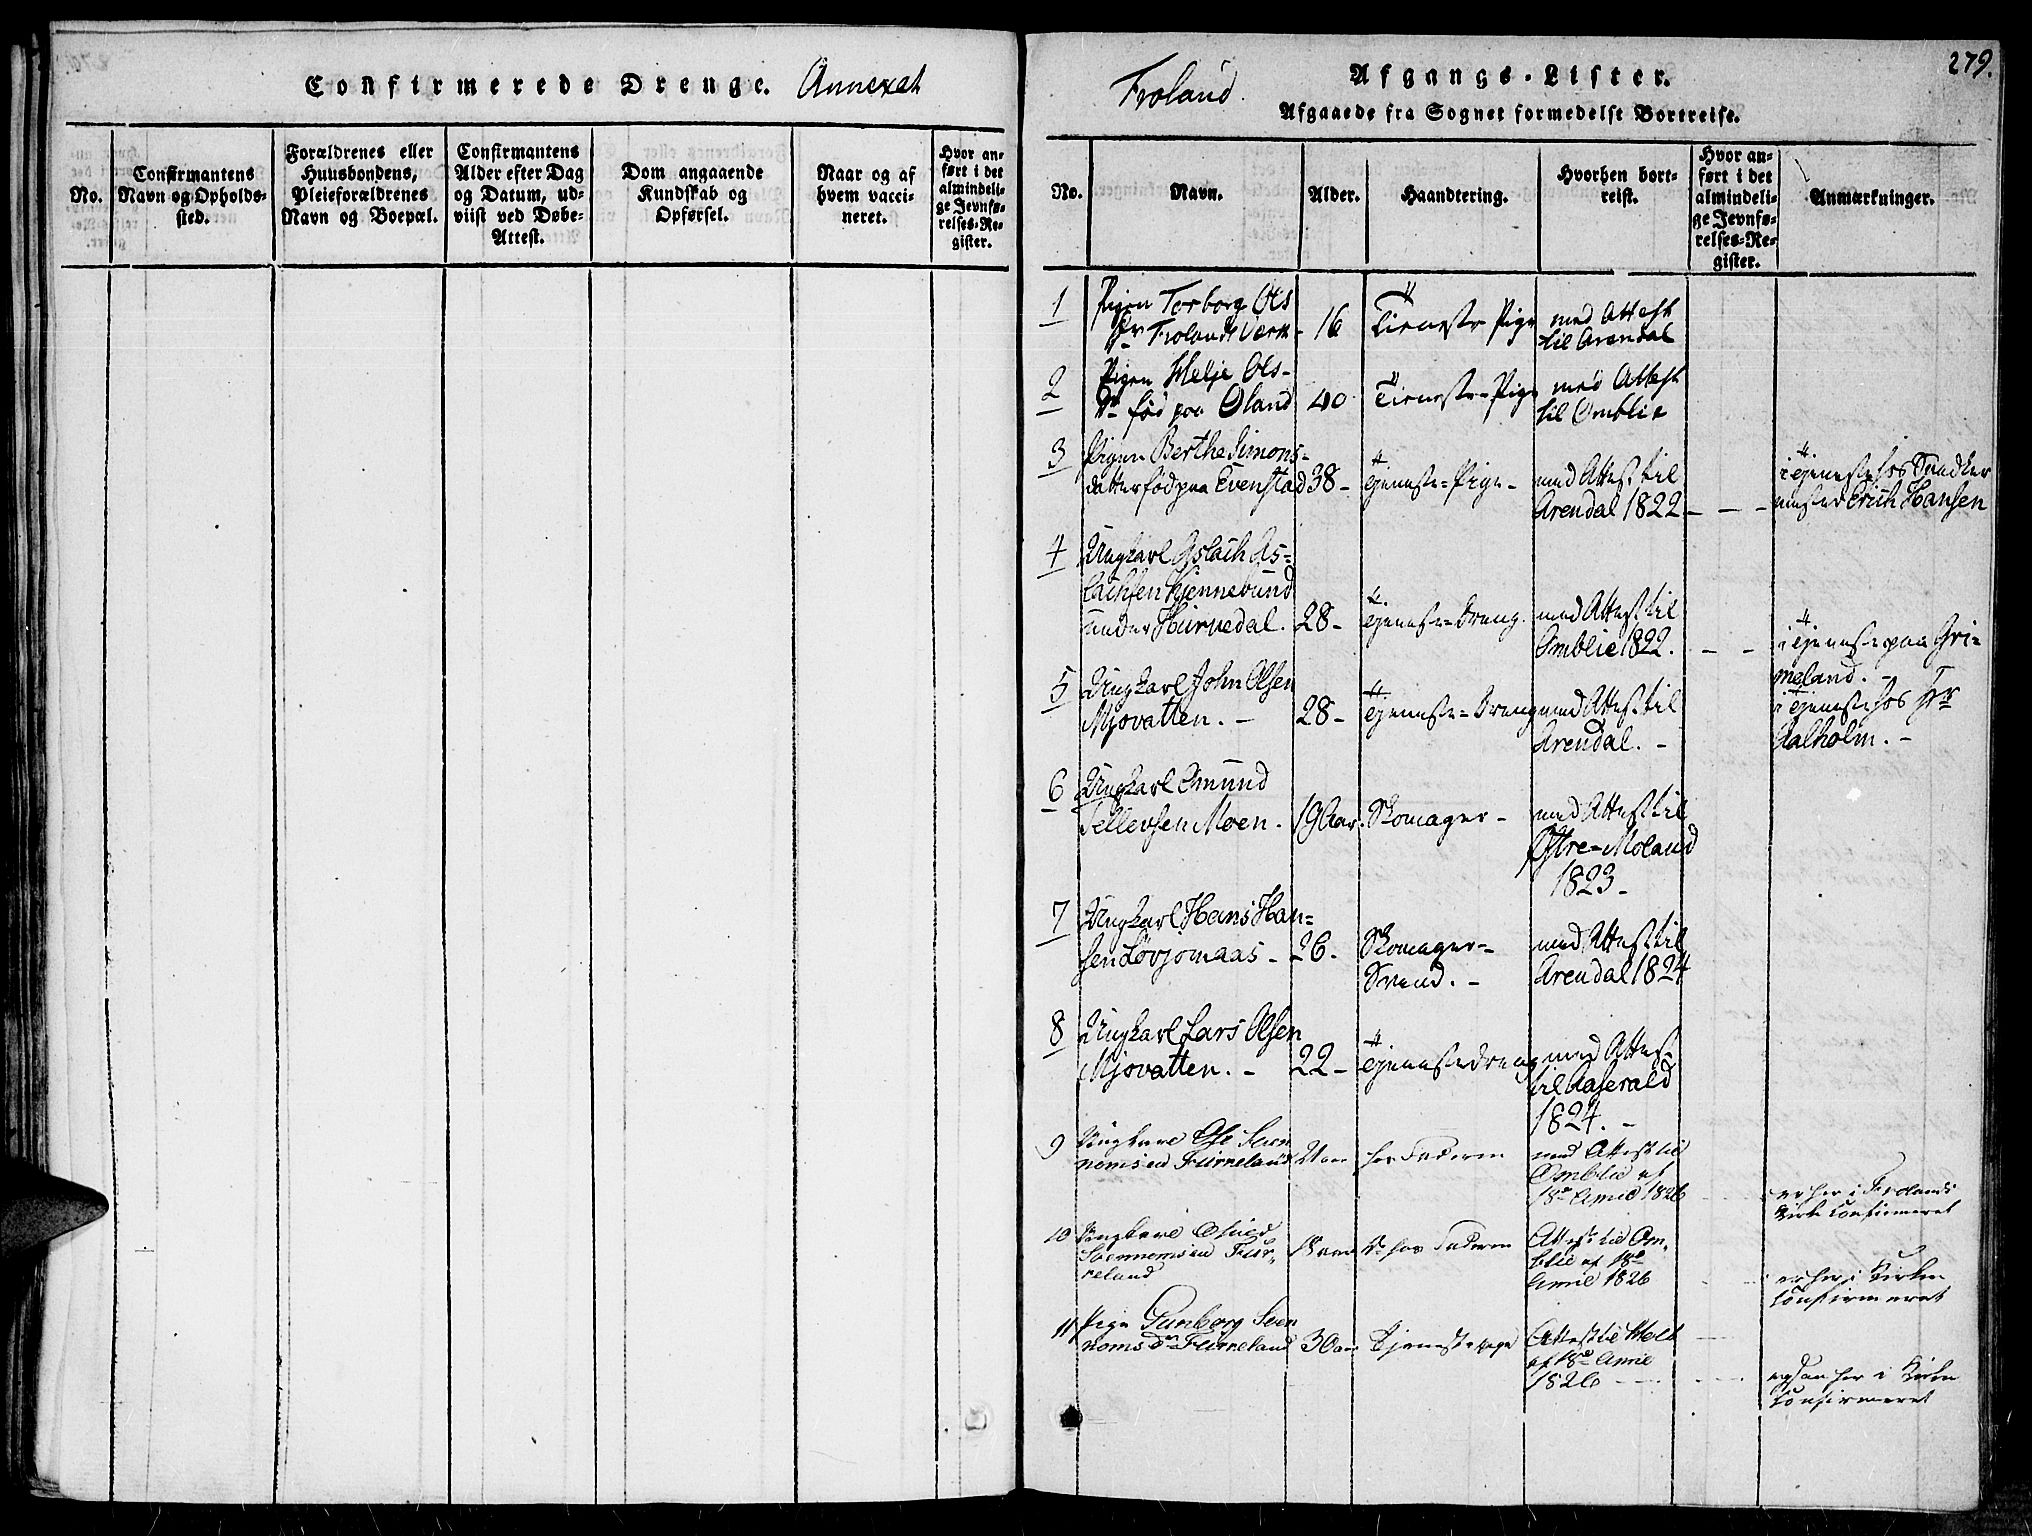 Confirmerede Drenge. Annexet
No.
Confirmantens
Navn og Opholds-
sted.
Forældrenes eller
Huusbondens,
Pleieforældrenes
Navn og Boepæl.
Confirmantens
Alder efter Dag
og Datum, ud-
viist ved Døbe-
Attest.
Dom angaaende
Kundskab og
Opførsel.
Naar og af
hvem vacci-
neret.
Hvor an-
ført i det
almindeli-
ge Jevnfø-
relses-Re-
gister.
Froland. Afgangs-Lister. 279.
Afgaaede fra Sognet formedelst Bortreise.
No.
Navn.
Alder.
Haandtering.
Hvorhen bort-
reist.
Hvor an-
ført i det
almindeli-
ge Jevnfø-
relses-Re-
gister.
Anmærkninger.
1 Pigen Torborg Ols
Dr Frolands Værk - 16 Tieneste Pige med Attest
til Arendal
2 Pigen Helje Ols-
Dr fød paa Øland 40 Tieneste-Pige med Attest
til Omblie
3 Pigen Berthe Simons-
datter fød paa Evenstad 38 - Tjeneste-Pige - med Attest til
Arendal 1822 - - -
i Tjeneste hos Snedker
mester Erich Hansen
4 Ungkarl Aslach As-
lachsen Hjennebund
under Hurvedal. 28 - Tjeneste-Dreng. med Attest til
Omblie 1822. - -
i Tjeneste paa Gri-
meland. -
5 Ungkarl John Olsen
Mjovatten. - 28 - Tjeneste-Dreng med Attest til
Arendal. -
i Tjeneste hos Hr
Aalholm. -
6 Ungkarl Omund
Tellevsen Moen. 19 Aar. Skomager - med Attest til
Østre-Moland
1823 -
7 Ungkarl Hans Han-
sen Løvjomaas - 26. Skomager-
Svend. - med Attest til
Arendal 1824
8 Ungkarl Lars Olsen
Mjovatten. - 22 - Tjenestedreng med Attest
til Aaserald
1824. -
9 Ungkarl Ole
Furreland hos Faderen med Attest til
Omblie af
18de April 1826
er her i Frolands
Kirke Confirmeret
10 Ungkarl
Fur-
reland hos Faderen Attest til Om-
blie af 18de
April 1826
er her i Kirken
Confirmeret
11 Pige Gunborg
Furreland 30 Tjenestepige Attest til Holt
af 18de April
1826
ogsaa her i Kirken
Confirmeret